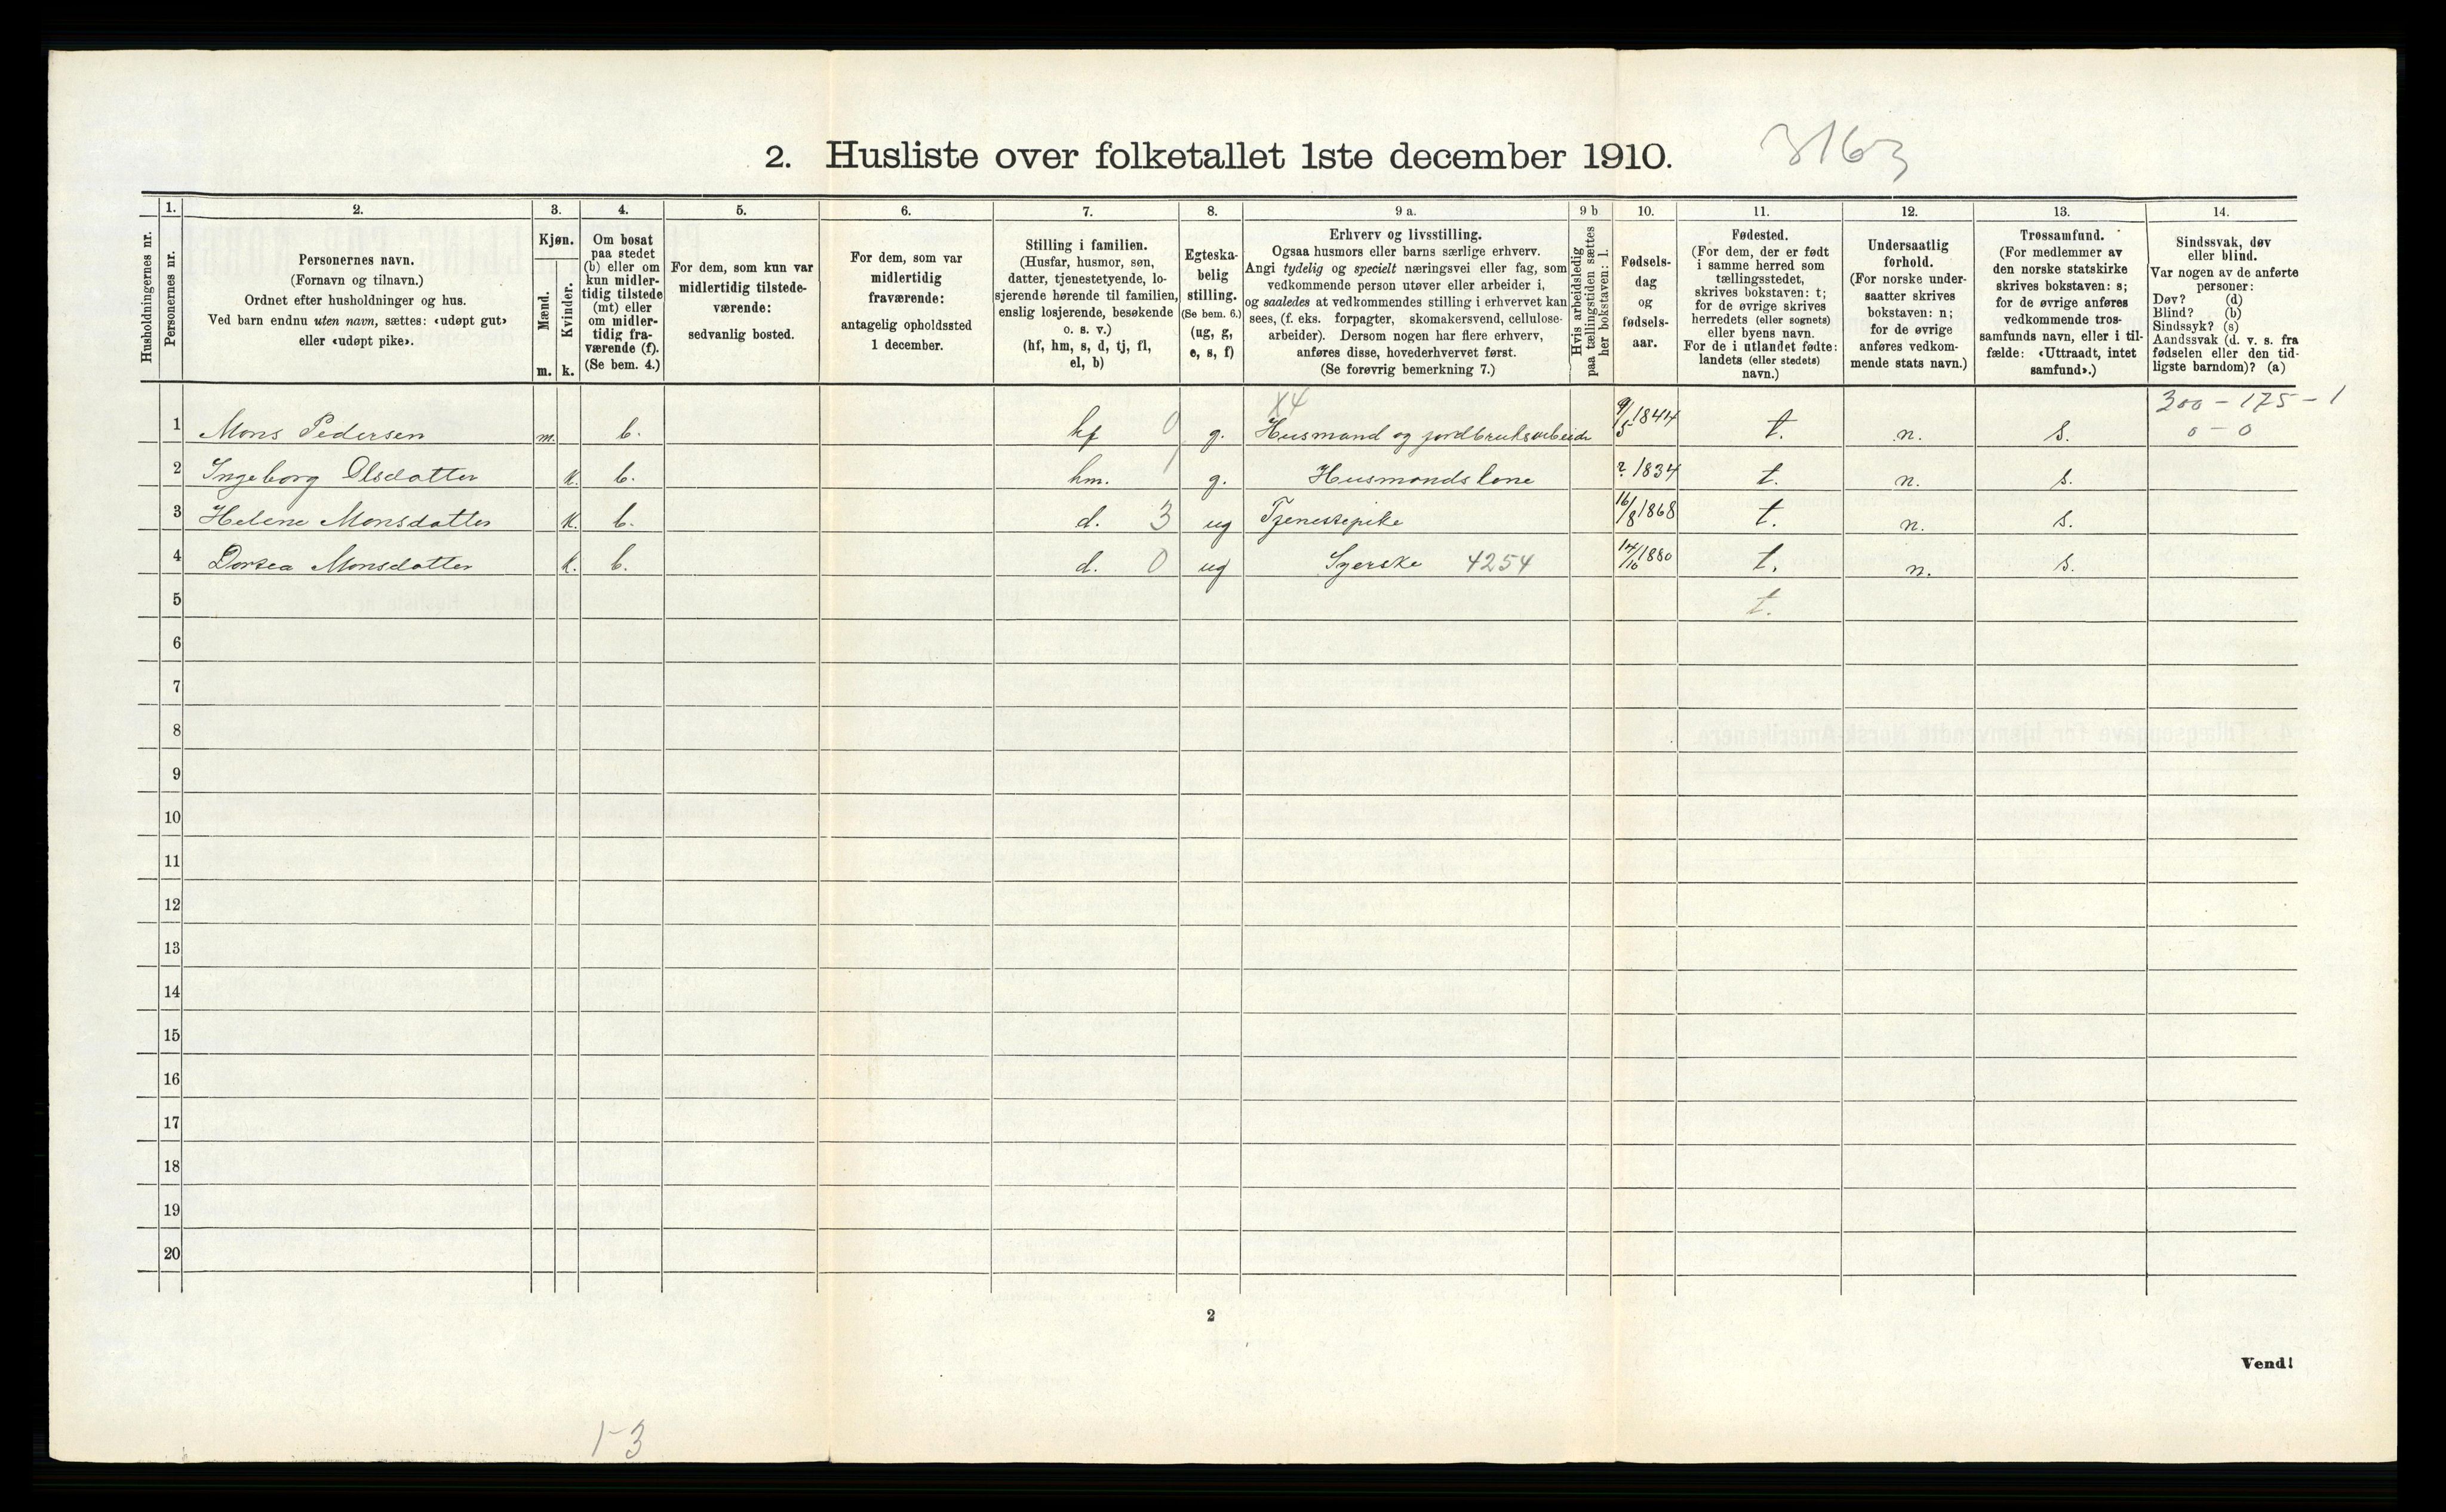 2. Husliste over folketallet 1ste december 1910. 3163
1. 2. 3. 4. 5. 6. 7. 8. 9 a. 9 b 10. 11. 12. 13. 14.
Husholdningernes nr.
Personernes nr.
Personernes navn.
(Fornavn og tilnavn.)
Ordnet efter husholdninger og hus.
Ved barn endnu uten navn, sættes: «udøpt gut»
eller «udøpt pike».
Kjøn.
Mænd.
Kvinder.
m. k.
Om bosat
paa stedet
(b) eller om
kun midler-
tidig tilstede
(mt) eller
om midler-
tidig fra-
værende (f).
(Se bem. 4.)
For dem, som kun var
midlertidig tilstede-
værende:
sedvanlig bosted.
For dem, som var
midlertidig
fraværende:
antagelig opholdssted
1 december.
Stilling i familien.
(Husfar, husmor, søn,
datter, tjenestetyende, lo-
sjerende hørende til familien,
enslig losjerende, besøkende
o. s. v.)
(hf, hm, s, d, tj, fl,
el, b)
Egteska-
belig
stilling.
(Se bem. 6.)
(ug, g,
e, s, f)
Erhverv og livsstilling.
Ogsaa husmors eller barns særlige erhverv.
Angi tydelig og specielt næringsvei eller fag, som
vedkommende person utøver eller arbeider i,
og saaledes at vedkommendes stilling i erhvervet kan
sees, (f. eks. forpagter, skomakersvend, cellulose-
arbeider). Dersom nogen har flere erhverv,
anføres disse, hovederhvervet først.
(Se forøvrig bemerkning 7.)
Hvis arbeidsledig
paa tællingstiden sættes
her bokstaven: l.
Fødsels-
dag
og
fødsels-
aar.
Fødested.
(For dem, der er født
i samme herred som
tællingsstedet,
skrives bokstaven: t;
for de øvrige skrives
herredets (eller sognets)
eller byens navn.
For de i utlandet fødte:
landets (eller stedets)
navn.)
Undersaatlig
forhold.
(For norske under-
saatter skrives
bokstaven: n;
for de øvrige
anføres vedkom-
mende stats navn.)
Trossamfund.
(For medlemmer av
den norske statskirke
skrives bokstaven: s;
for de øvrige anføres
vedkommende tros-
samfunds navn, eller i til-
fælde: «Uttraadt, intet
samfund».)
Sindssvak, døv
eller blind.
Var nogen av de anførte
personer:
Døv? (d)
Blind? (b)
Sindssyk? (s)
Aandssvak (d. v. s. fra
fødselen eller den tid-
ligste barndom)? (a)
X4 300 - 175 - 1
1 Mons Pedersen m. b. hf 0 g. Husmand og jordbruksarbeide 9/5 1844 t. n. s. 0 - 0
2 Ingeborg Olsdatter k. b. hm. 1 g. Husmandskone ? 1834 t. n. s.
3 Helene Monsdatter k. b. d. 3 ug Tjenestepike 16/8 1868 t. n. s.
4 Dortea Monsdatter k. b. d. 0 ug Syerske 4254 14/10 1880 t. n. s.
5 t.
6
7
8
9
10
11
12
13
14
15
16
17
18
19
20
2
Vend!
1-3